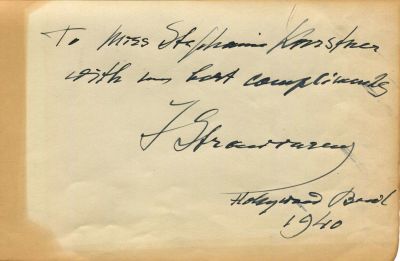 To Miss Stephanie
with my best compliments
I Strawinsky
Hollywood Bowl
1940